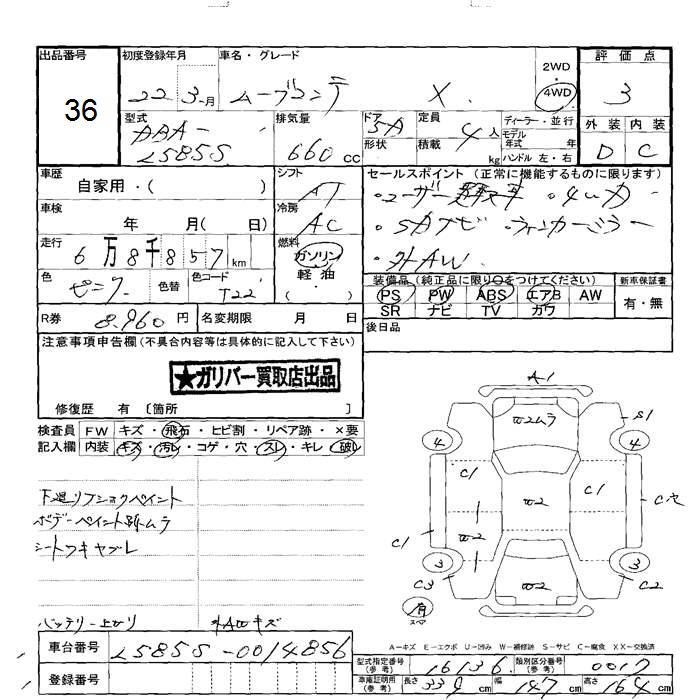 出品番号
36
初度登録年月
22 3 月
車名・グレード
ムーブコンテ X
2WD
4WD
評価点
3
型式
ABA-
L585S
排気量
660 cc
ドア
5A
形状
定員
4 人
積載
kg
ディーラー・並行
モデル
年式 年
ハンドル 左・右
外装 内装
D C
車歴
自家用・( )
シフト
AT
セールスポイント (正常に機能するものに限ります)
・ユーザー買取車 ・4WD
・SDナビ ・ウィンカーミラー
・社外AW
車検
年 月( 日)
冷房
AC
走行
6万8千857 km
燃料
ガソリン
軽油
( )
色
色替
色コード
T22
装備品 (純正品に限り○をつけてください)
PS PW ABS エアB AW
SR ナビ TV カワ
新車保証書
有・無
R券
8.960 円
名変期限 月 日
後日品
注意事項申告欄 (不具合内容等は具体的に記入して下さい)
★ガリバー買取店出品
修復歴 有 〔箇所 〕
検査員
記入欄
FW キズ・飛石・ヒビ割・リペア跡・×要
内装 キズ・汚レ・コゲ・穴・スレ・キレ・破レ
下廻リブショクペイント
ボデーペイント別ムラ
シートワキヤブレ
バッテリー上がり
外AWキズ
A-1
W2ムラ
S1
4
4
C1
C1
W2
W2
C1
3
3
C3
W2
C2
有
スペア
車台番号
L585S-0014856
登録番号
A-キズ E-エクボ U-凹み W-補修跡 S-サビ C-腐食 XX-交換済
型式指定番号
(参考)
16136
類別区分番号
(参考)
0017
車庫証明用
(参考)
長さ 339 cm
幅 147 cm
高さ 164 cm